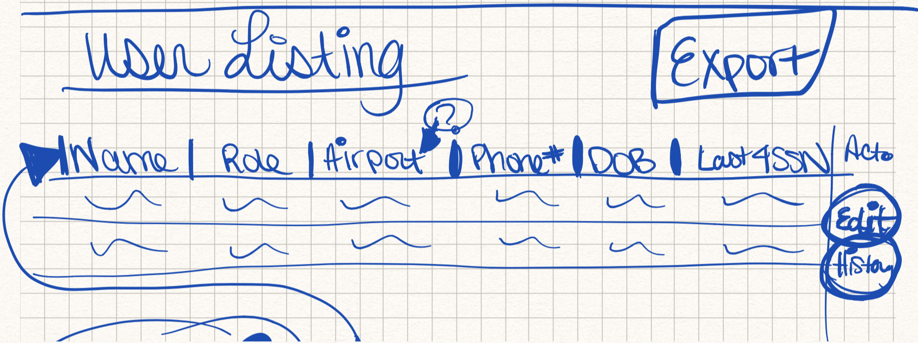 User Listing Export
?
Name | Role | Airport | Phone# | DOB | Last 4 SSN | Acto
Edit
History